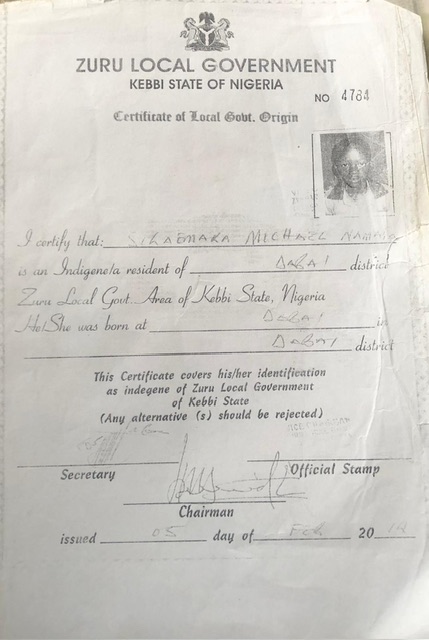 ZURU LOCAL GOVERNMENT
KEBBI STATE OF NIGERIA
NO 4784
Certificate of Local Govt. Origin
I certify that: MICHAEL
is an Indigene/a resident of DABAI district
Zuru Local Govt. Area of Kebbi State, Nigeria
He/She was born at DABAI in
DABAI district
This Certificate covers his/her identification
as indegene of Zuru Local Government
of Kebbi State
(Any alternative (s) should be rejected)
Secretary Official Stamp
Chairman
issued 05 day of Feb 20